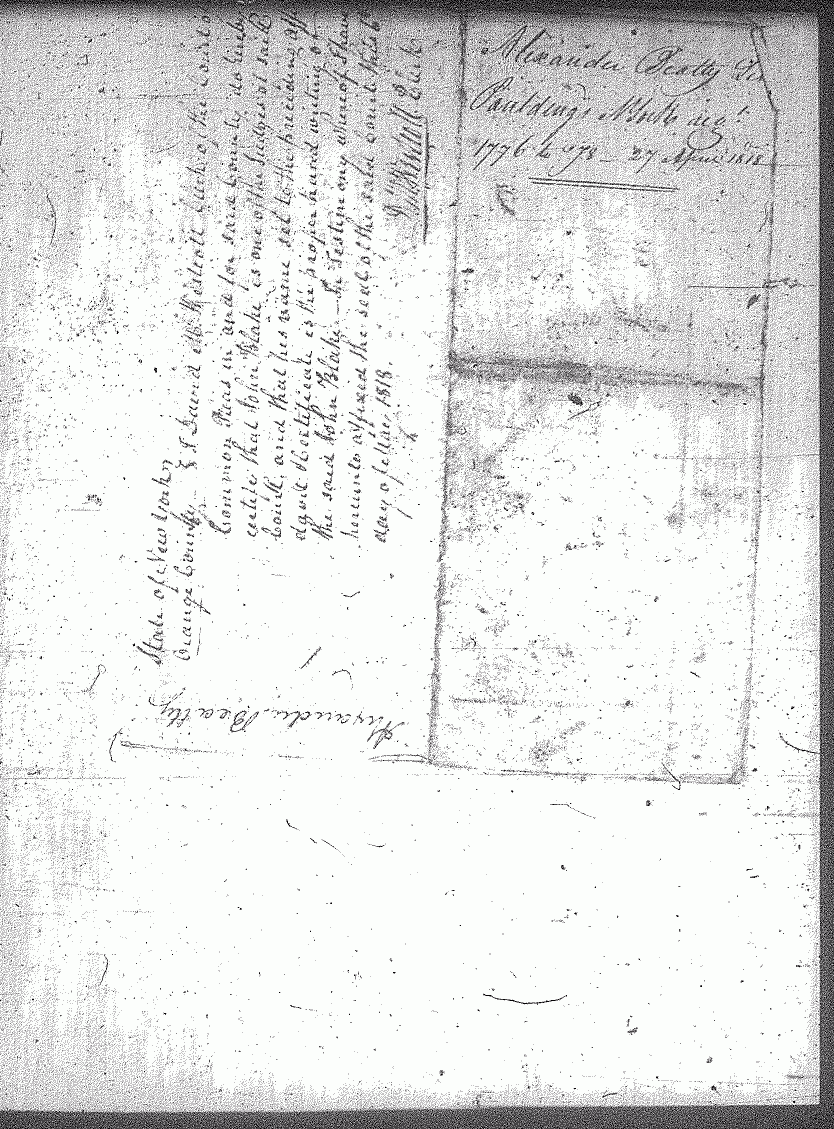 Alexander Beatty
Pauldings N York reg.t
1776 to '78 — 27 April 1818
State of New York
Orange County
I David M. Westcott Clerk of the Court of
Common Pleas in and for said County do hereby
certify that John Blake is one of the Judges of said
Court, and that his name set to the preceding aff
davit & certificate is the proper hand writing of
the said John Blake — In Testimony whereof I have
hereunto affixed the seal of the said Court this
day of May, 1818.
D. M. Westcott Clerk
Alexander Beatty